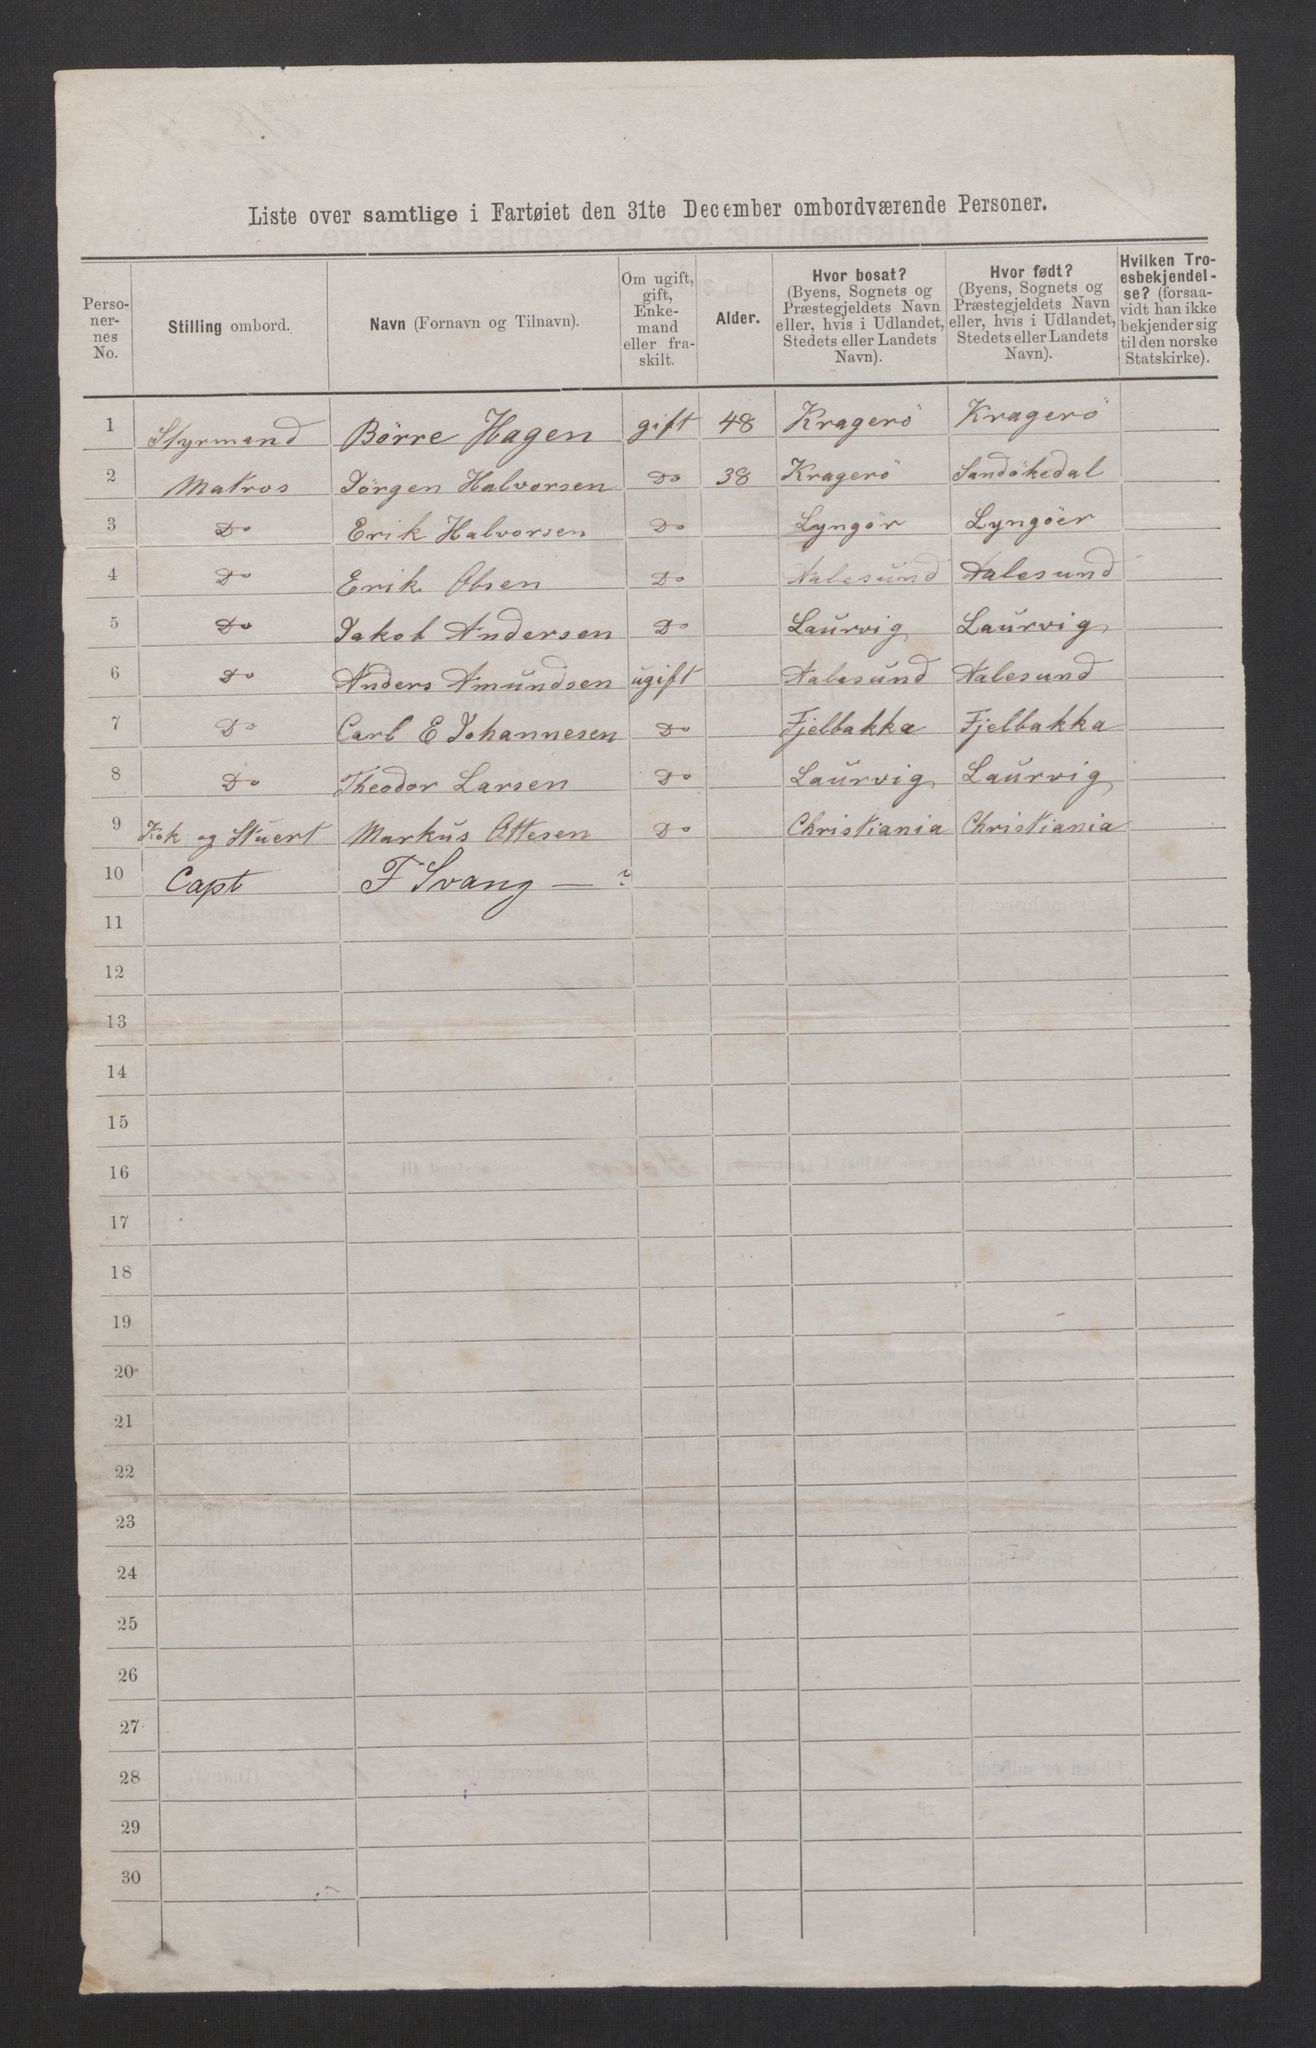 Liste over samtlige i Fartøiet den 31te December ombordværende Personer.
Perso-nernes No. | Stilling ombord. | Navn (Fornavn og Tilnavn). | Om ugift, gift, Enkemand eller fraskilt. | Alder. | Hvor bosat? (Byens, Sognets og Præstegjeldets Navn eller, hvis i Udlandet, Stedets eller Landets Navn). | Hvor født? (Byens, Sognets og Præstegjeldets Navn eller, hvis i Udlandet, Stedets eller Landets Navn). | Hvilken Troesbekjendelse? (forsaavidt han ikke bekjender sig til den norske Statskirke).
1 Styrmand Börre Hagen gift 48 Kragerö Kragerö
2 Matros Jörgen Halvorsen Do 38 Kragerö Sandökedal
3 Do Erik Halvorsen Do Lyngör Lyngöer
4 Do Erik Olsen Do Aalesund Aalesund
5 Do Jakob Andersen Do Laurvig Laurvig
6 Do Anders Amundsen ugift Aalesund Aalesund
7 Do Carl E Johannesen Do Fjelbakka Fjelbakka
8 Do Theodor Larsen Do Laurvig Laurvig
9 Kok og Stuert Markus Ottesen Do Christiania Christiania
10 Capt F Svang — ?
11
12
13
14
15
16
17
18
19
20
21
22
23
24
25
26
27
28
29
30